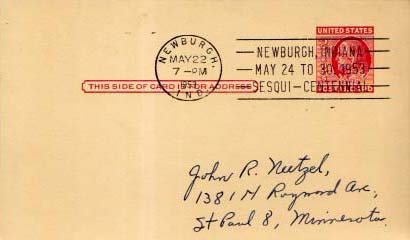 UNITED STATES
NEWBURGH,
MAY 22
7-PM
1953
IND.
NEWBURGH, INDIANA
MAY 24 TO 30, 1953
SESQUI-CENTENNIAL
THIS SIDE OF CARD IS FOR ADDRESS
John R. Neetzel,
1381 N Raymond Ave,
St Paul 8, Minnesota.